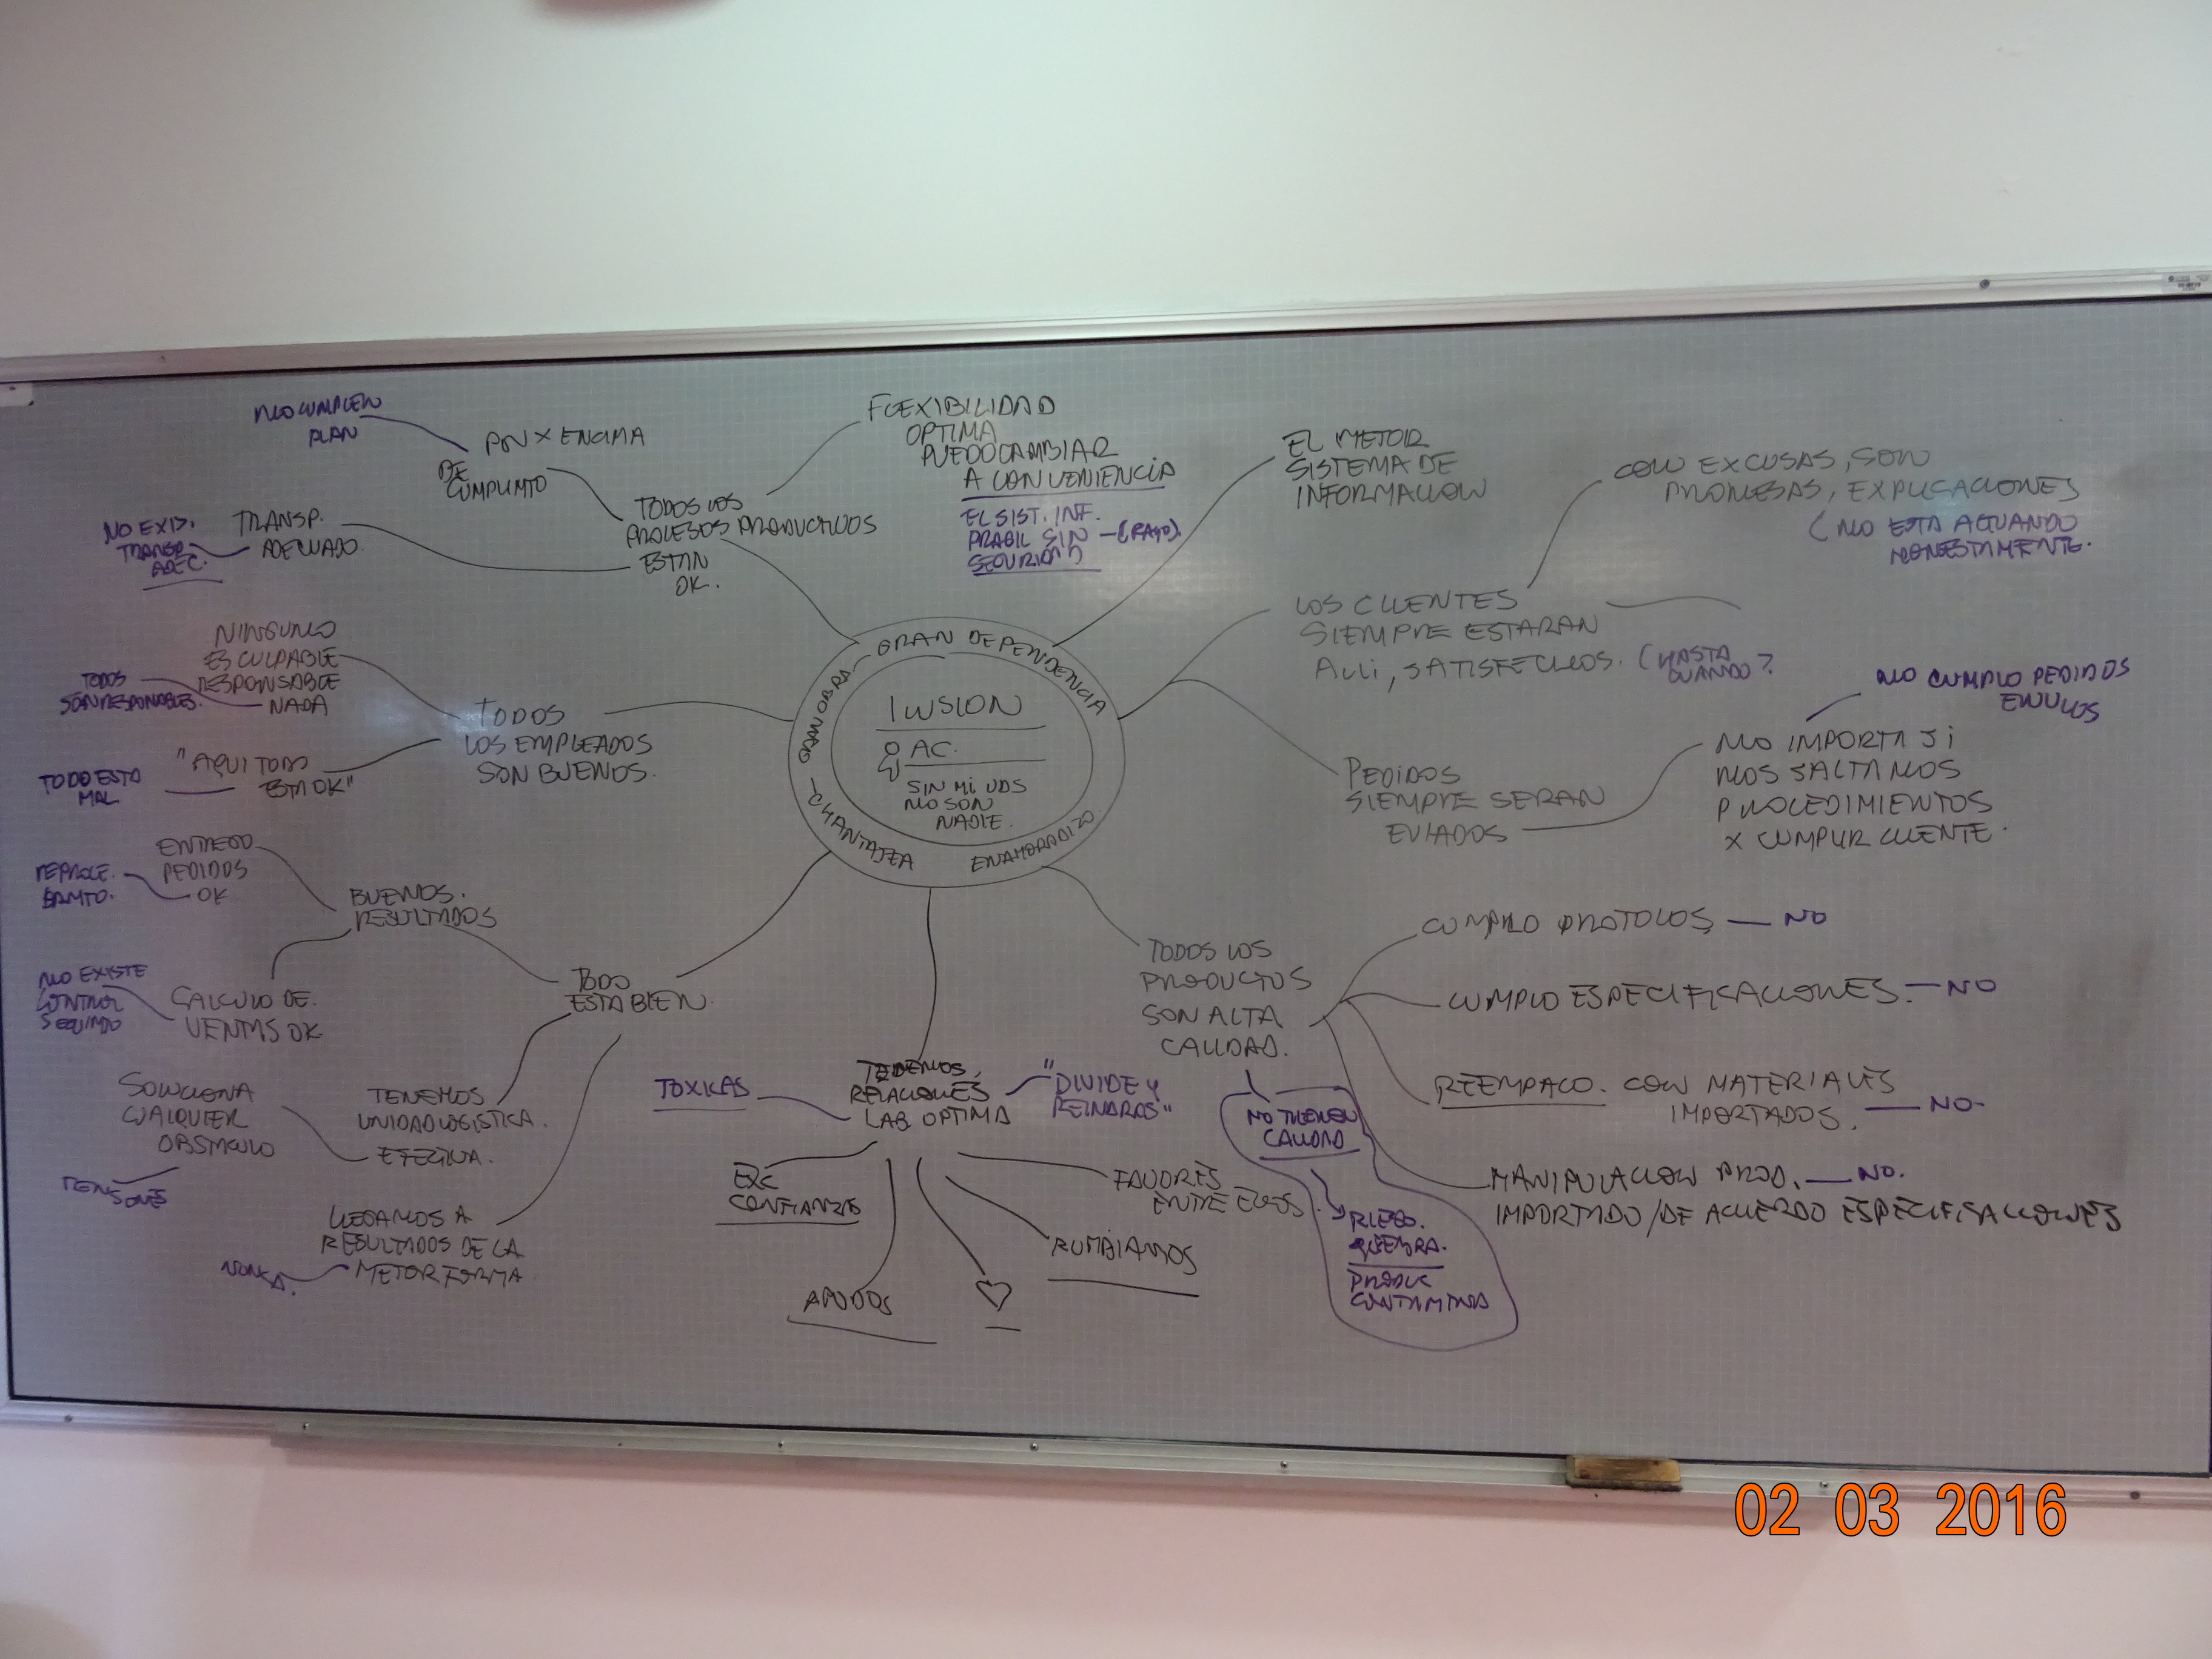 NO CUMPLEN
PLAN
X ENCIMA
DE
CUMPLIMTO
NO EXIS.
TRANSP.
ADEC.
TRANSP.
ADECUADO
TODOS LOS
PROCESOS PRODUCTIVOS
ESTAN
OK.
FLEXIBILIDAD
OPTIMA
PUEDO CAMBIAR
A CONVENIENCIA
EL SIST. INF.
FRAGIL SIN
SEGURIDAD
EL MEJOR
SISTEMA DE
INFORMACION
CON EXCUSAS, SON
PROMESAS, EXPLICACIONES
(NO ESTA ACTUANDO
HONESTAMENTE.
LOS CLIENTES
SIEMPRE ESTARAN
ALLI, SATISFECHOS. (HASTA
CUANDO?
PEDIDOS
SIEMPRE SERAN
EVIADOS
NO CUMPLO PEDIDOS
NO IMPORTA SI
NOS SALTAMOS
PROCEDIMIENTOS
X CUMPLIR CLIENTE.
GRAN OBRA - GRAN DEPENDENCIA
CHANTAJEA
ENAMORADIZO
ILUSION
AC.
SIN MI UDS
NO SON
NADIE.
NINGUNO
ES CULPABLE
RESPONSABLE
NADA
TODOS
SON RESPONABLES.
TODOS
LOS EMPLEADOS
SON BUENOS.
"AQUI TODO
ESTA OK"
TODO ESTA
MAL
ENTREGO
PEDIDOS
OK
REPROCE.
SAMTO.
BUENOS.
RESULTADOS
NO EXISTE
CONTROL
SEGUINDO
CALCULO DE.
VENTAS OK
TODO
ESTA BIEN.
SOLUCIONA
CUALQUIER
OBSTACULO
TENSONES
TENEMOS
UNIDAD LOGISTICA.
EFECTIVA.
LLEGAMOS A
RESULTADOS DE LA
MEJOR FORMA
NUNCA.
TOXICAS
TENEMOS,
RELACIONES
LAB OPTIMA
"DIVIDE Y
REINARAS"
EXC
CONFIANZAS
APODOS
RUMBIAMOS
FAVORES
ENTRE ELLOS.
TODOS LOS
PRODUCTOS
SON ALTA
CALIDAD.
NO TIENEN
CALIDAD
RIESG.
QUIEBRA.
PRODUC
CONTAMINAD
CUMPLO PROTOLOS — NO
CUMPLO ESPECIFISACIONES. — NO
REEMPACO. CON MATERIALES
IMPORTADOS. — NO.
MANIPULACION PROD. — NO.
IMPORTADO/DE ACUERDO ESPECIFISACIONES
02 03 2016